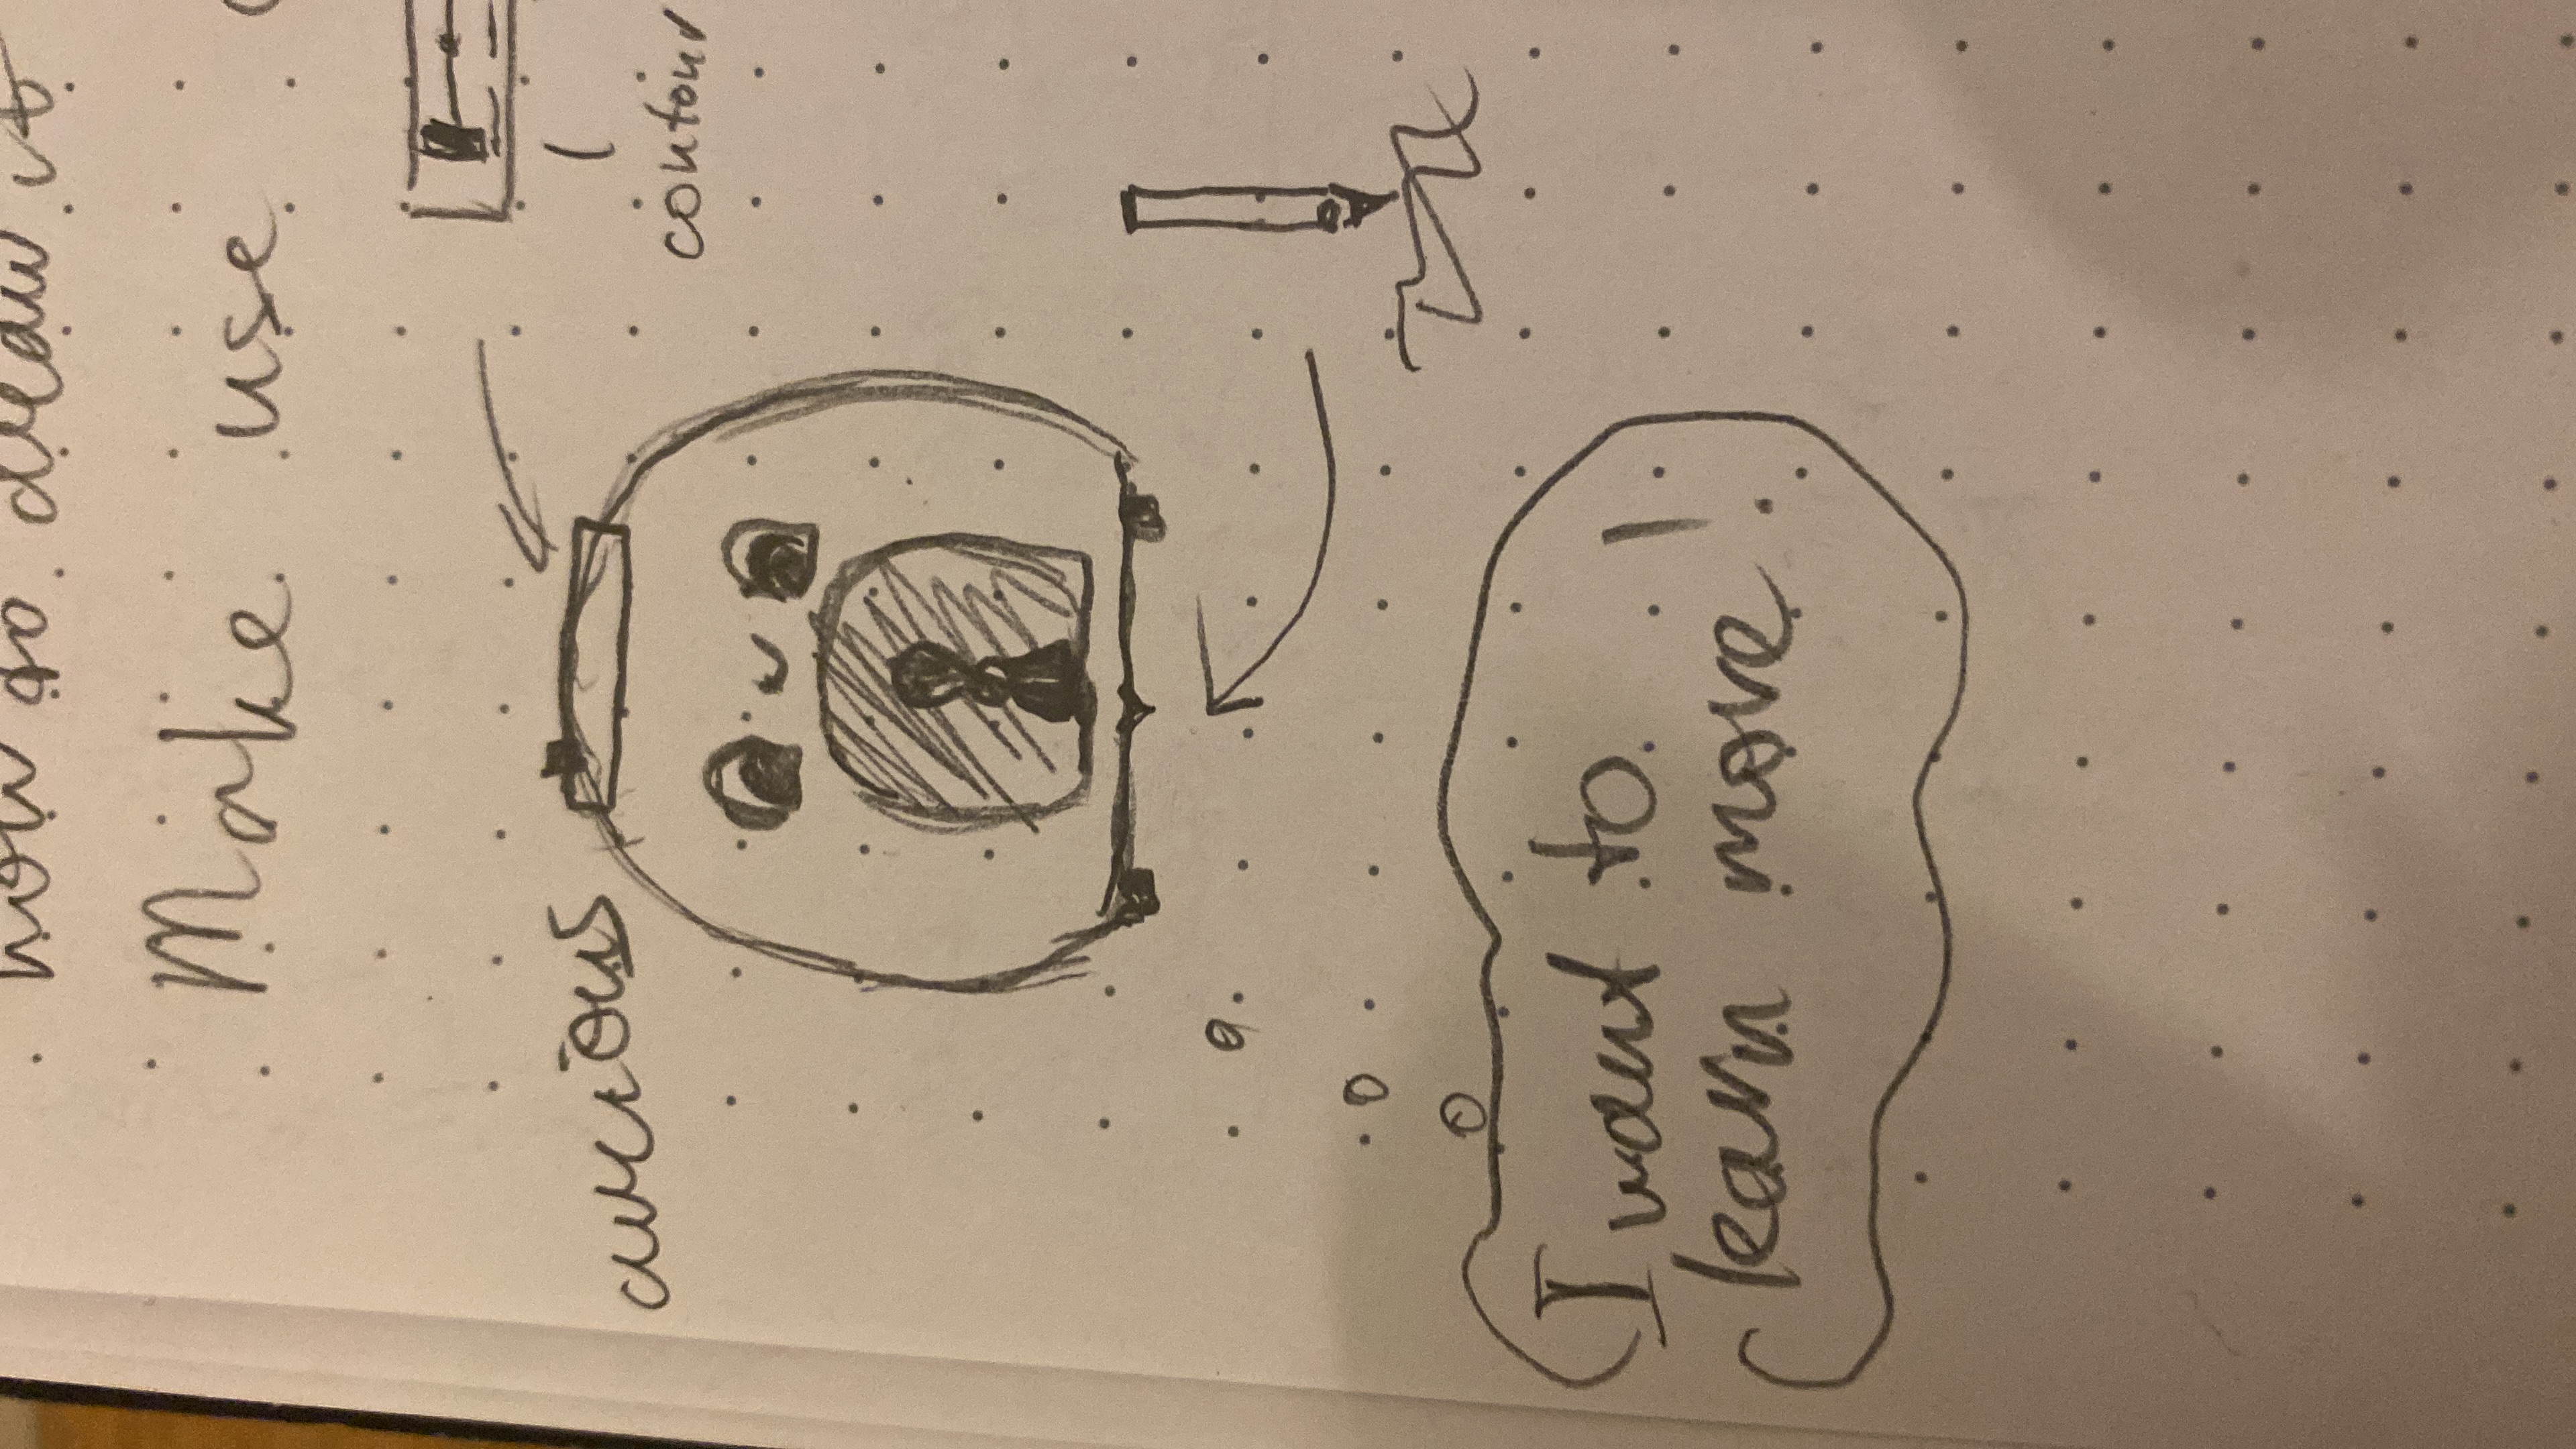 how to draw it
Make use
curious
contour
I want to
learn more!